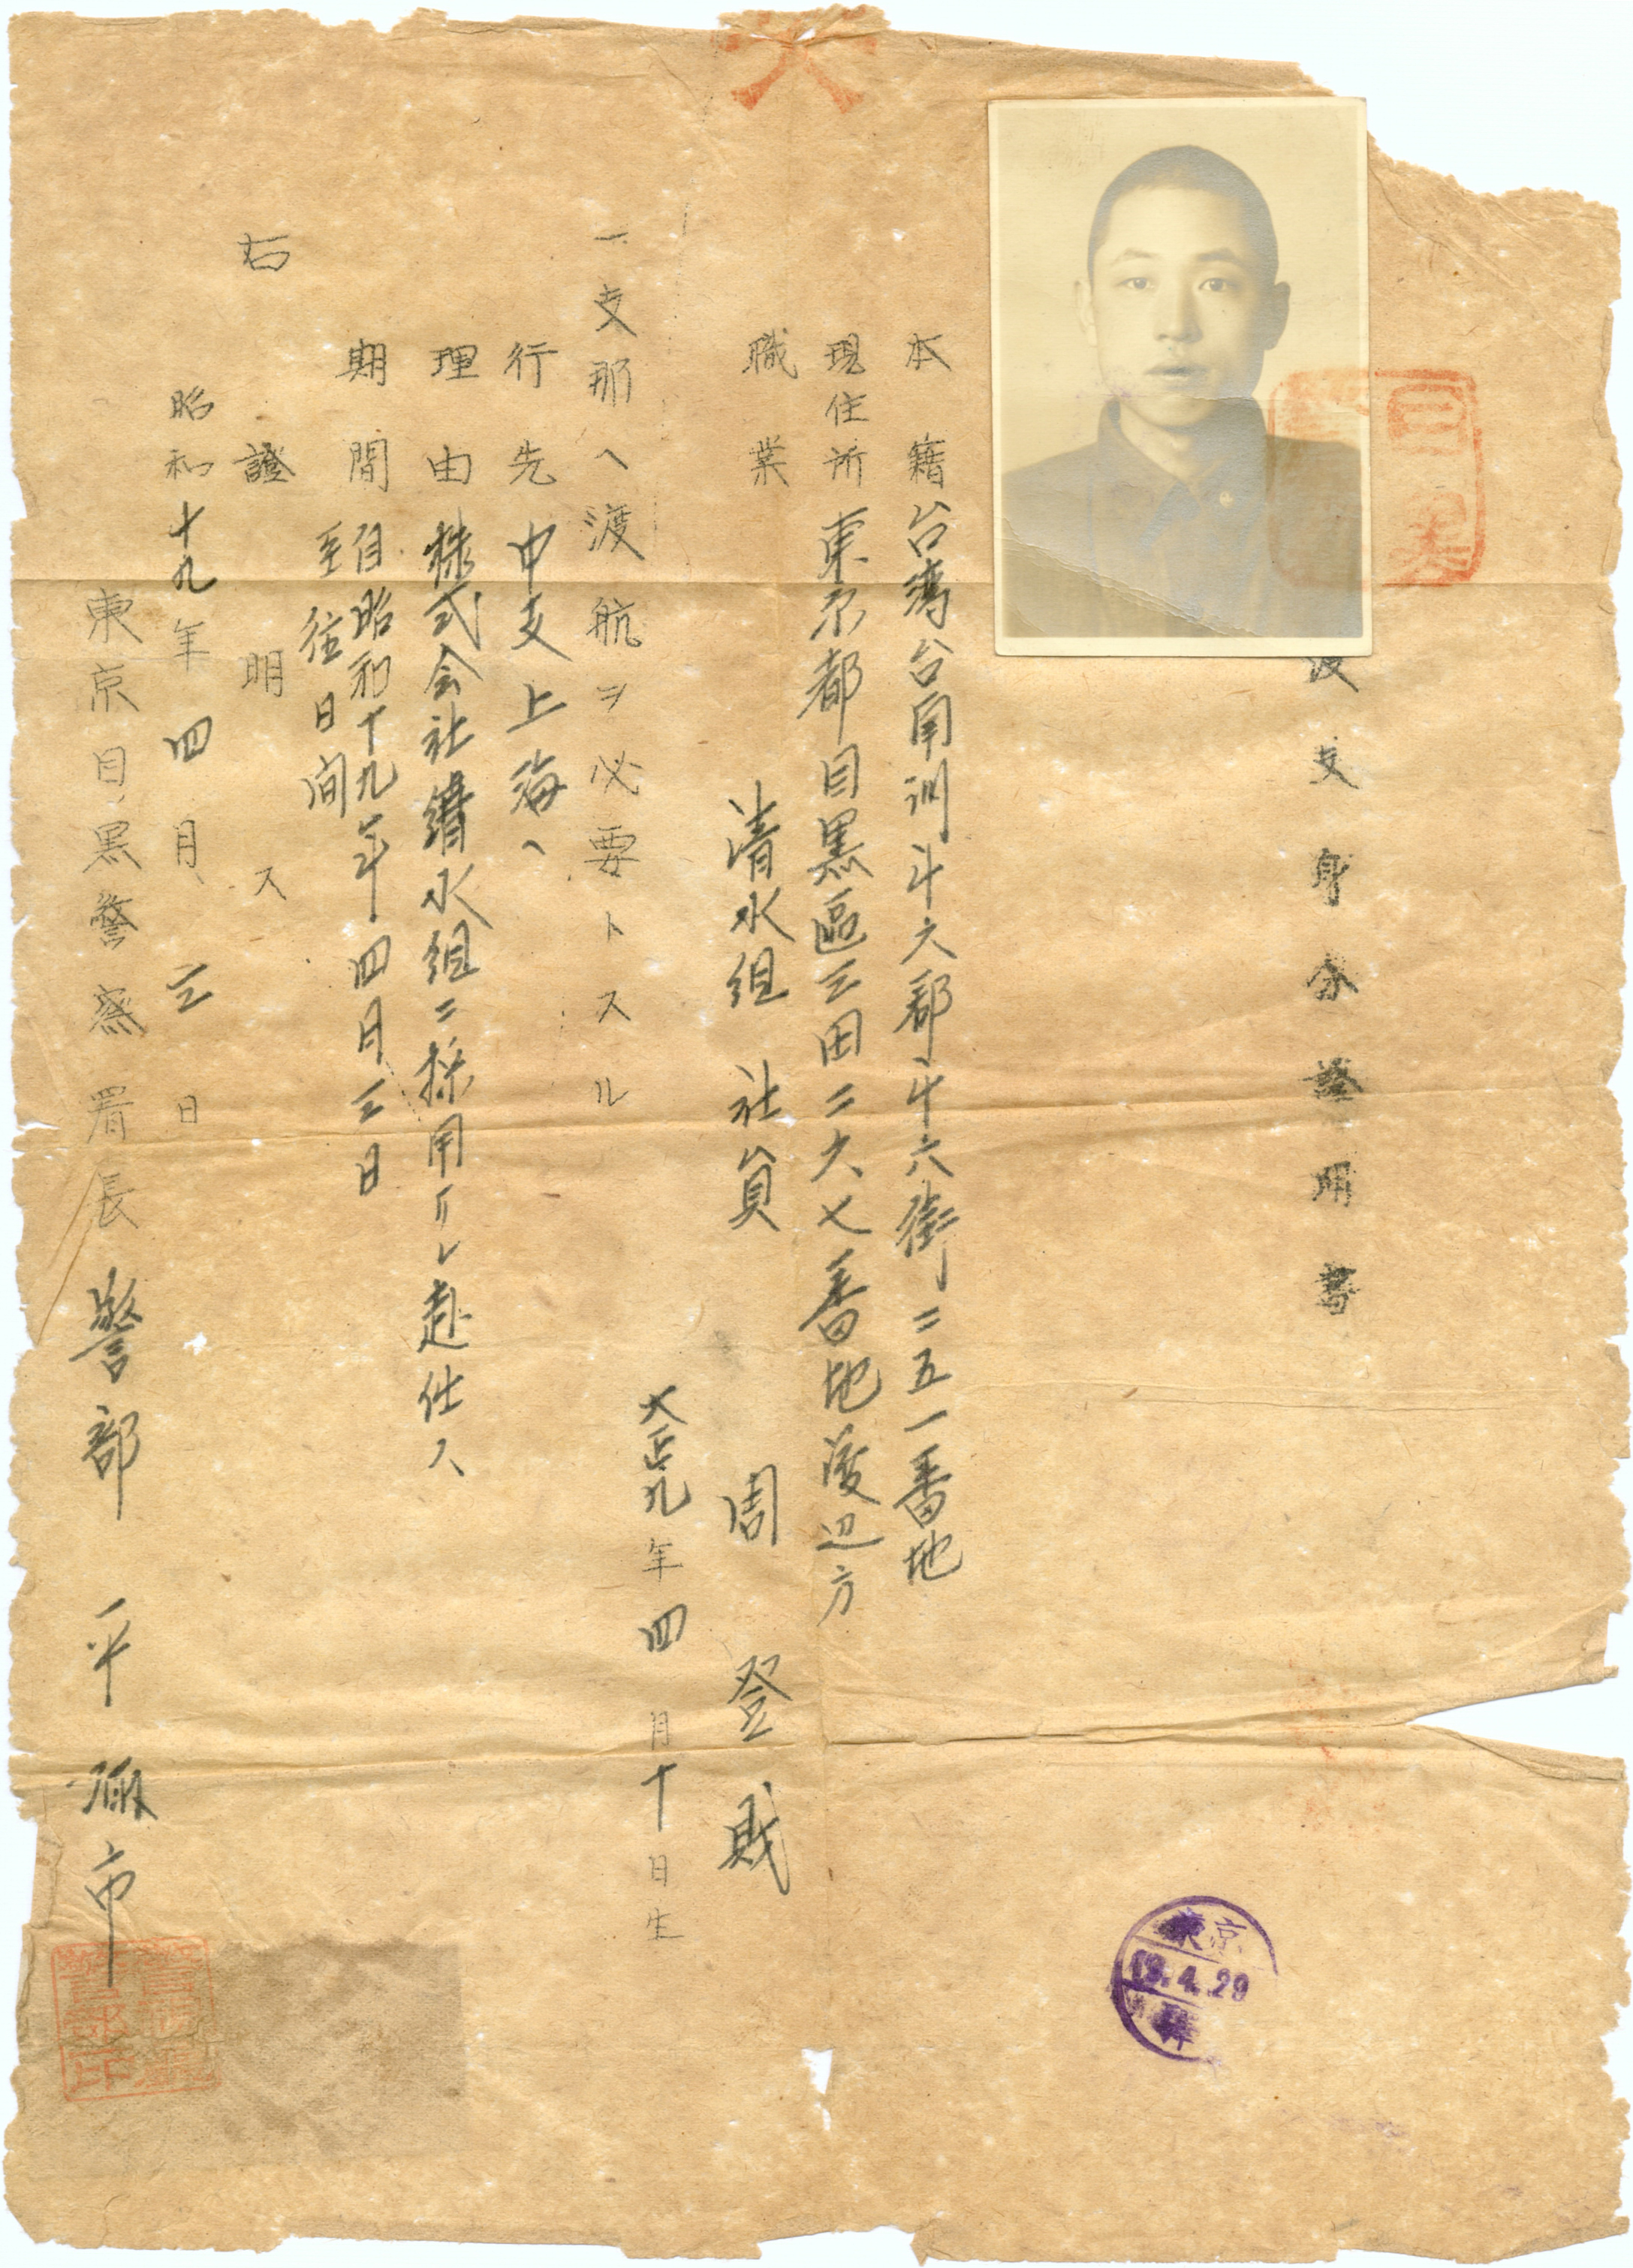 渡支身分證明書
本籍 台湾台南州斗六郡斗六街二五一番地
現住所 東京都目黒區三田二六七番地渡辺方
職業 清水組 社員
周登財
大正九年四月十日生
一支那ヘ渡航ヲ必要トスル
行先 中支上海ヘ
理由 株式会社清水組ニ採用サレ赴任ス
期間 自昭和十九年四月三日
至 往日間
右證明ス
昭和十九年四月三日
東京目黒警察署長 警部 平
東京
19.4.29